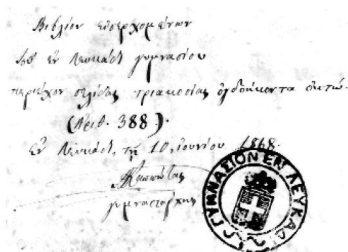 Βιβλίον εἰσερχομένων
τοῦ ἐν Λευκάδι γυμνασίου
περιέχον σελίδας τριακοσίας ὀγδοήκοντα ὀκτώ.
(Ἀριθ. 388).
Ἐν Λευκάδι, τῇ 10 Ἰουνίου 1868.
γυμνασιάρχης
ΓΥΜΝΑΣΙΟΝ ΕΝ ΛΕΥΚΑΔΙ